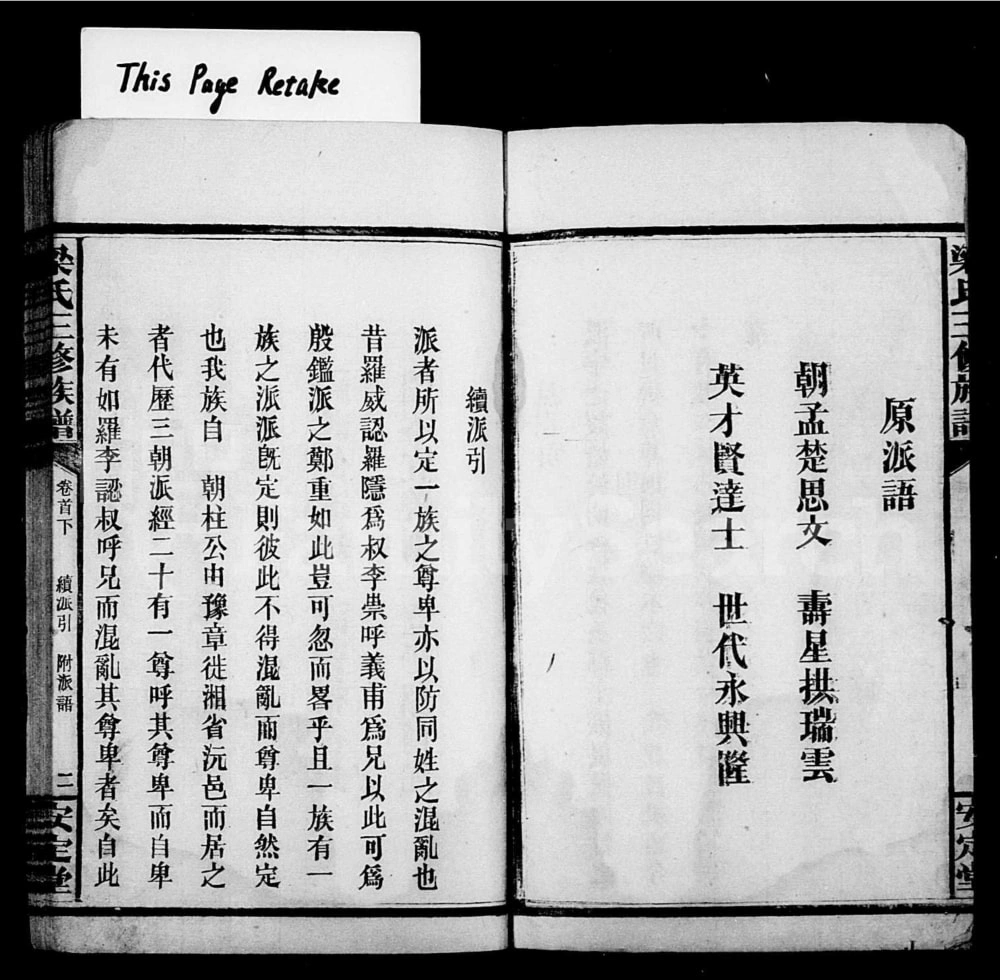 This Page Retake
梁氏三修族譜
安定堂
原派語
朝孟楚思文 壽星拱瑞雲
英才賢達士 世代永興隆
續派引
派者所以定一族之尊卑亦以防同姓之混亂也
昔羅威認羅隱爲叔李祟呼義甫爲兄以此可爲
殷鑑派之鄭重如此豈可忽而畧乎且一族有一
族之派派旣定則彼此不得混亂而尊卑自然定
也我族自 朝柱公由豫章徙湘省沅邑而居之
者代歷三朝派經二十有一尊呼其尊卑而自卑
未有如羅李認叔呼兄而混亂其尊卑者矣自此
梁氏三修族譜
卷首下 續派引 附派語
二 安定堂